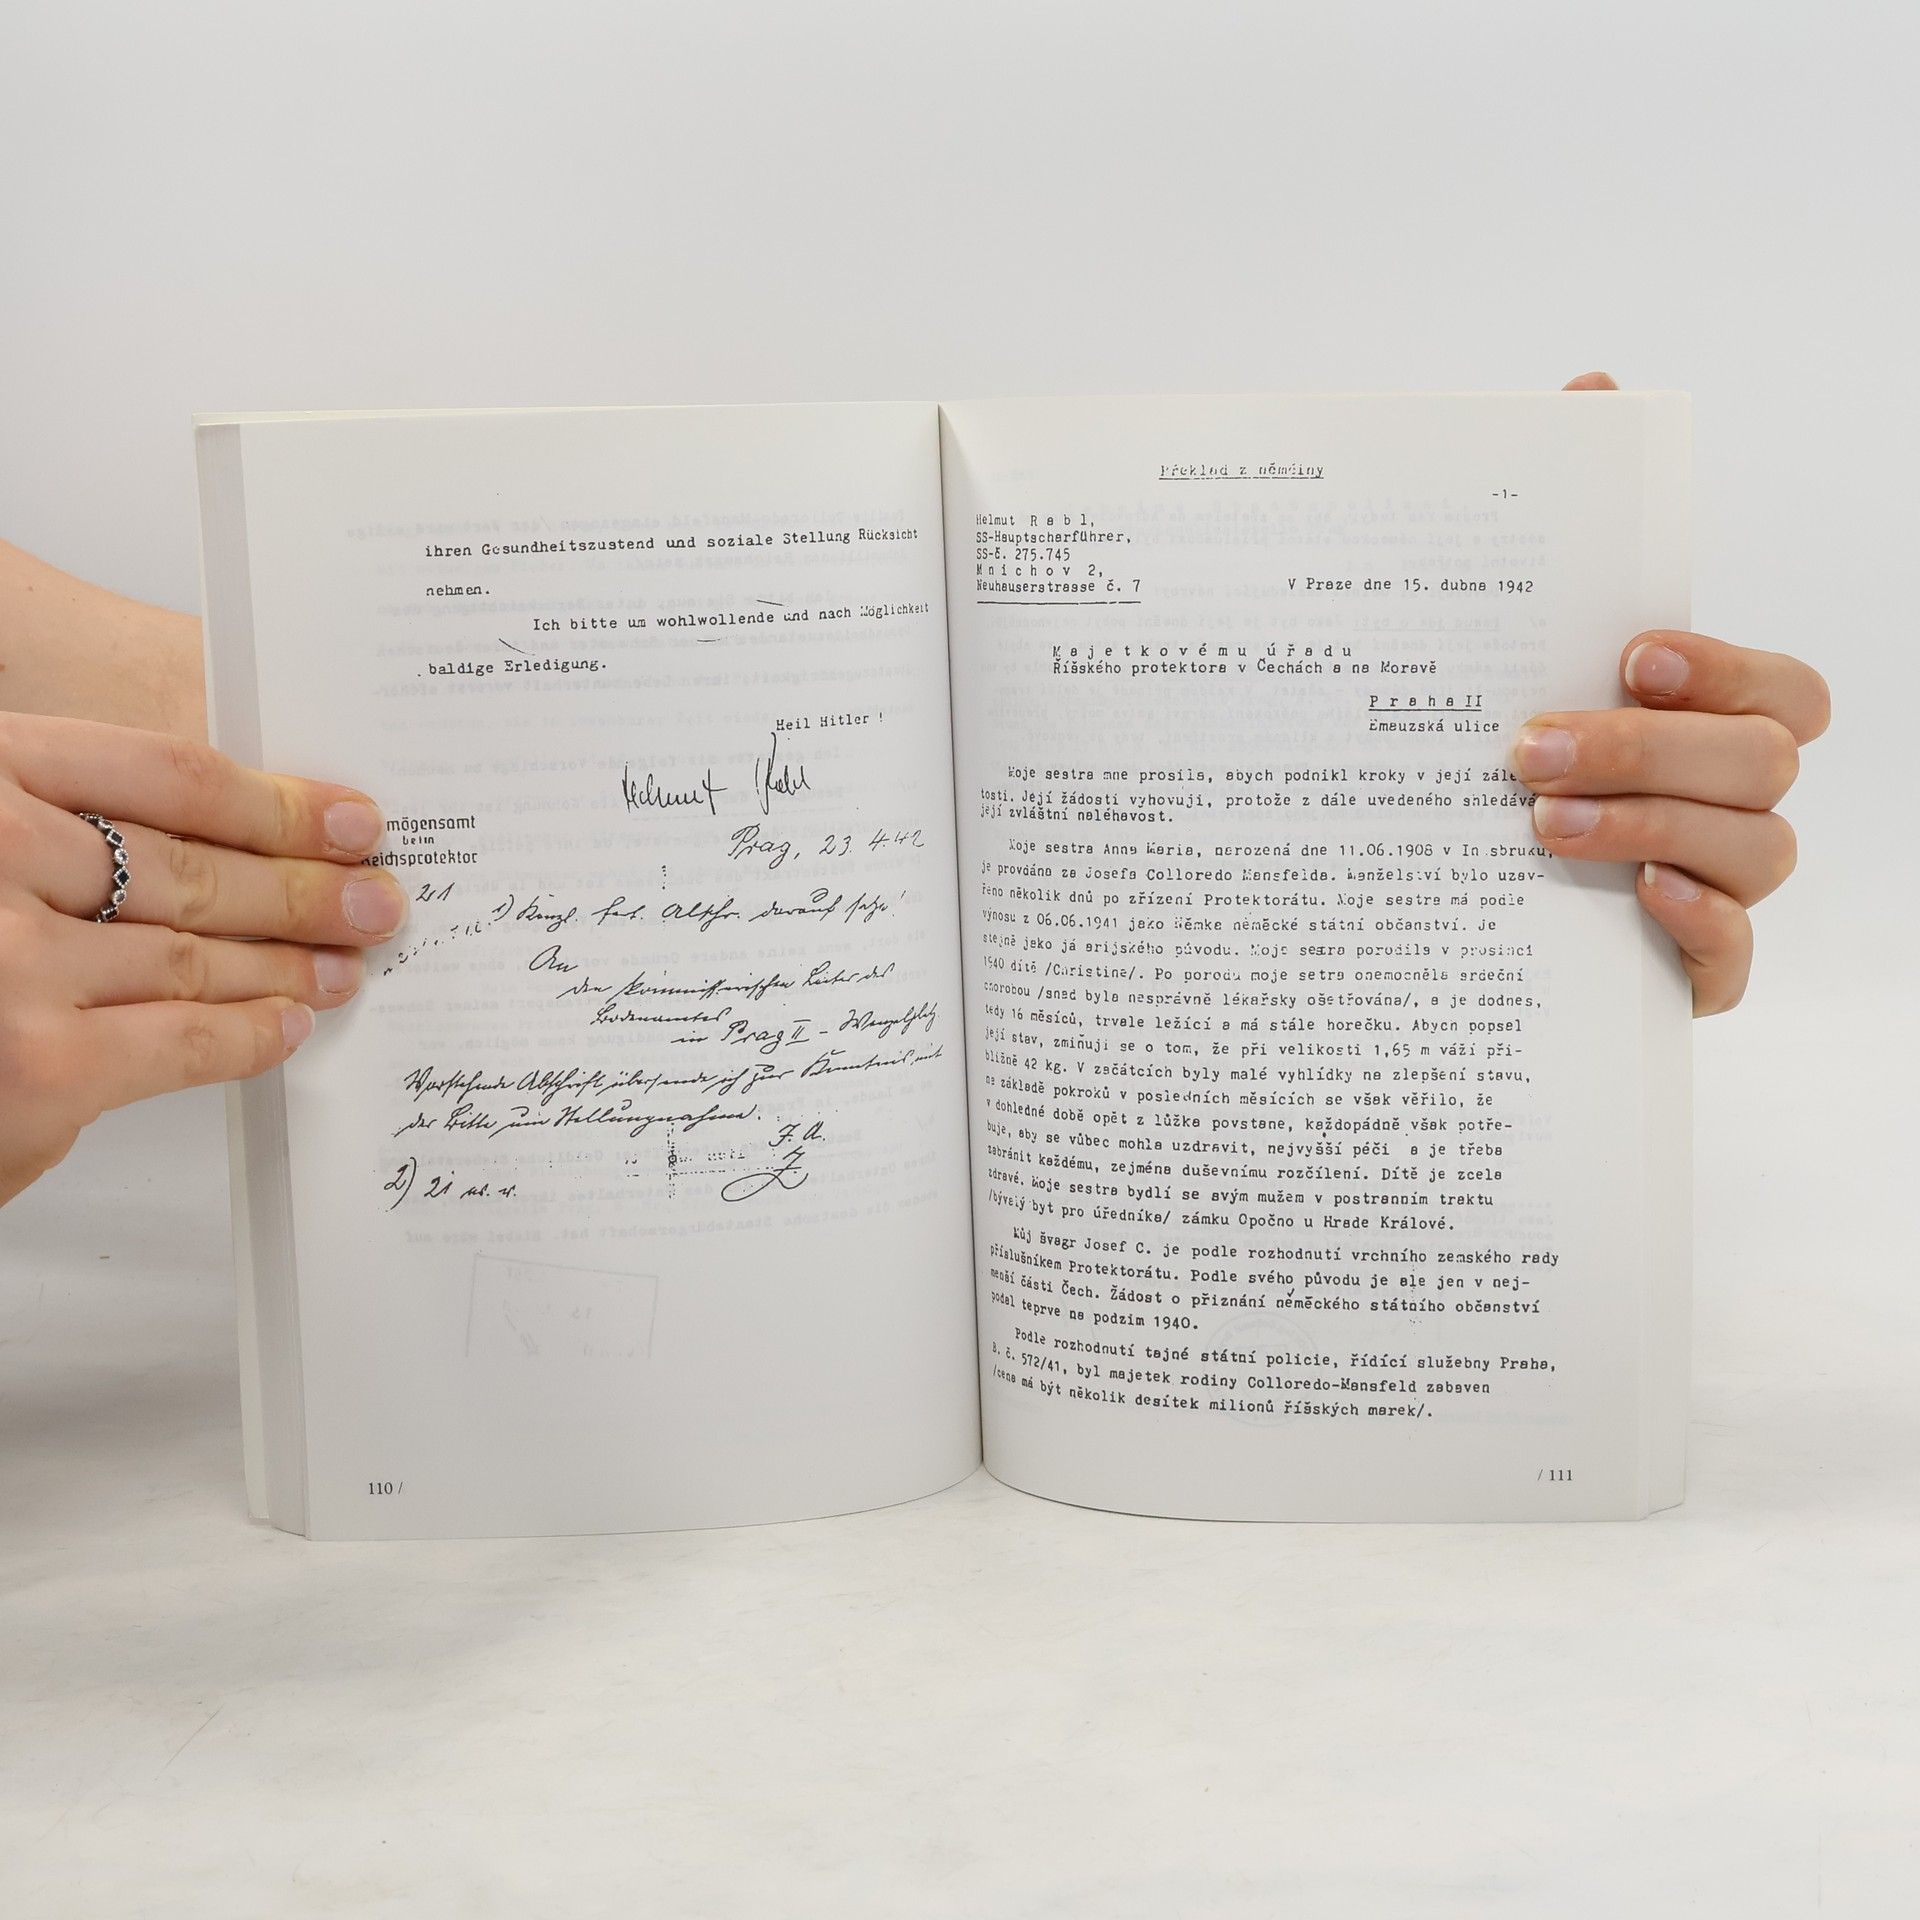 ihren Gesundheitszustend und soziale Stellung Rücksicht
nehmen.
Ich bitte um wohlwollende und nach Möglichkeit
baldige Erledigung.
Heil Hitler !
Helmut Rabl
mögensamt
beim
Reichsprotektor
Prag, 23. 4.42
21
1) Kanzl. fert. Abschr. darauf setze!
An
den kommissarischen Leiter des
Bodenamtes
in Prag II - Wenzelsplatz
Vorstehende Abschrift übersende ich zur Kenntnis mit
der Bitte um Stellungnahme.
J. A.
2) 21
110 /
Překlad z němčiny
-1-
Helmut R a b l,
SS-Hauptscharführer,
SS-č. 275.745
M n i c h o v 2,
Neuhauserstrasse č. 7
V Praze dne 15. dubna 1942
M a j e t k o v é m u ú ř a d u
Říšského protektora v Čechách a na Moravě
P r a h a II
Emauzská ulice
Moje sestra mne prosila, abych podnikl kroky v její zále
tosti. Její žádosti vyhovuji, protože z dále uvedeného shledává
její zvláštní naléhavost.
Moje sestra Anna Maria, narozená dne 11.06.1908 v In sbruku,
je provdána za Josefa Colloredo Mansfelda. Manželství bylo uzav-
řeno několik dnů po zřízení Protektorátu. Moje sestra má podle
výnosu z 06.06.1941 jako Němka německé státní občanství. Je
stejně jako já arijského původu. Moje sestra porodila v prosinci
1940 dítě /Christine/. Po porodu moje setra onemocněla srdeční
chorobou /snad byla nesprávně lékařsky ošetřována/, a je dodnes,
tedy 16 měsíců, trvale ležící a má stále horečku. Abych popsal
její stav, zmiňuji se o tom, že při velikosti 1,65 m váží při-
bližně 42 kg. V začátcích byly malé vyhlídky na zlepšení stavu,
na základě pokroků v posledních měsících se však věřilo, že
v dohledné době opět z lůžka povstane, každopádně však potře-
buje, aby se vůbec mohla uzdravit, nejvyšší péči a je třeba
zabránit každému, zejména duševnímu rozčílení. Dítě je zcela
zdravé. Moje sestra bydlí se svým mužem v postranním traktu
/bývelý byt pro úředníka/ zámku Opočno u Hrade Králové.
Můj švagr Josef C. je podle rozhodnutí vrchního zemského rady
příslušníkem Protektorátu. Podle svého původu je ale jen v nej-
menší části Čech. Žádost o přiznání německého státního občanství
podal teprve na podzim 1940.
Podle rozhodnutí tajné státní policie, řídící služebny Praha,
B. č. 572/41, byl majetek rodiny Colloredo-Mansfeld zabaven
/cena má být několik desítek milionů říšských marek/.
/ 111